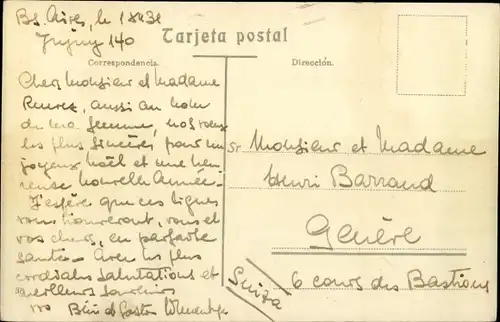 Bs. Aires, le
Jujuy 140
Tarjeta postal
Correspondencia.
Dirección.
Cher Monsieur et Madame
aussi au nom
de ma femme, nos vœux
les plus sincères pour un
joyeux Noël et une heu-
reuse nouvelle Année.
J'espère que ces lignes
vous trouveront, vous et
vos chers, en parfaite
santé. Avec les plus
cordiales salutations et
meilleurs souvenirs
Gaston
Monsieur et Madame
Henri Barraud
Genève
6 cours des Bastions
Suiza